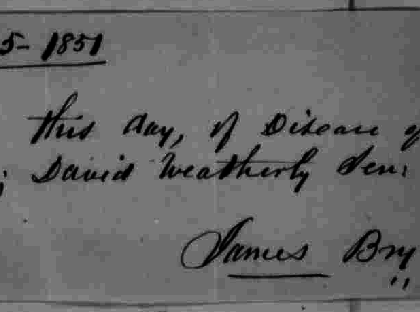 5- 1851
this day, of Disease of
; David Weatherly Sen:
James Bry